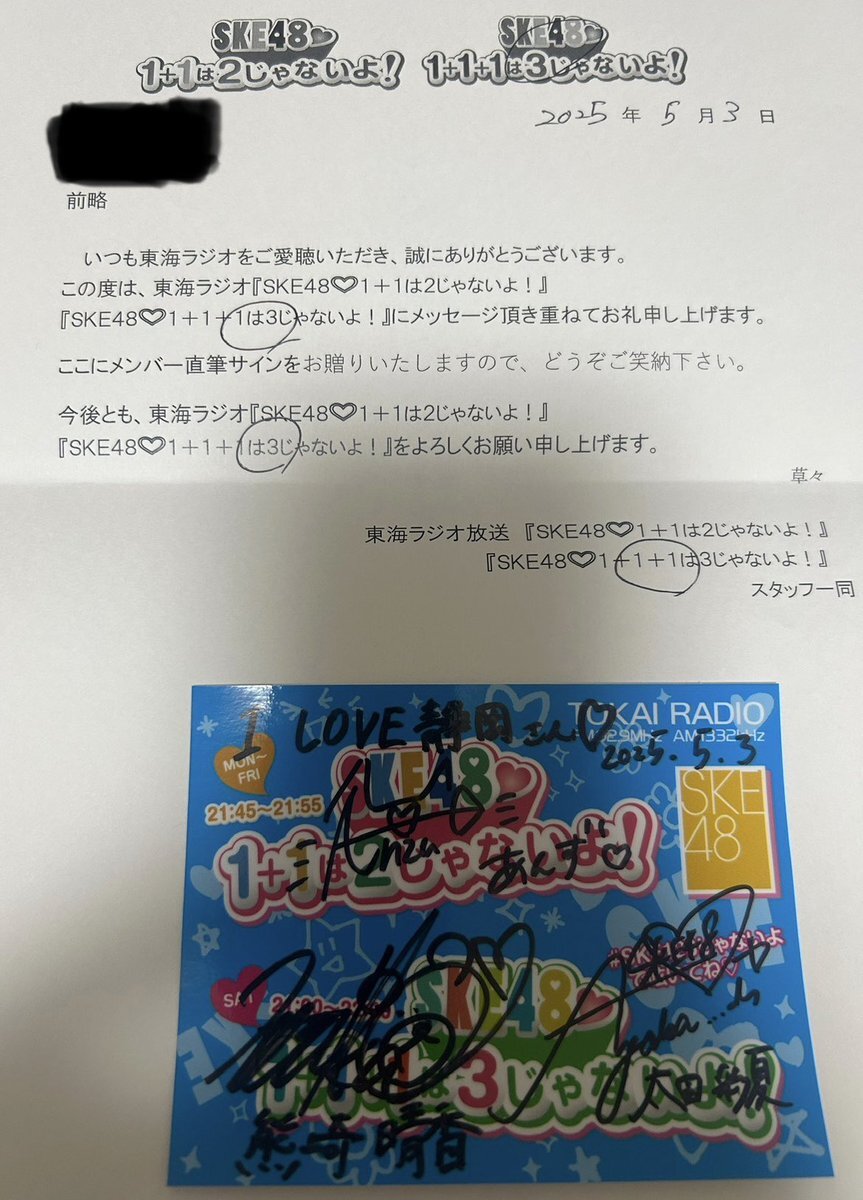 SKE48
1+1は2じゃないよ!
SKE48
1+1+1は3じゃないよ!
2025年5月3日
前略
いつも東海ラジオをご愛聴いただき、誠にありがとうございます。
この度は、東海ラジオ『SKE48♡1+1は2じゃないよ!』
『SKE48♡1+1+1は3じゃないよ!』にメッセージ頂き重ねてお礼申し上げます。
ここにメンバー直筆サインをお贈りいたしますので、どうぞご笑納下さい。
今後とも、東海ラジオ『SKE48♡1+1は2じゃないよ!』
『SKE48♡1+1+1は3じゃないよ!』をよろしくお願い申し上げます。
草々
東海ラジオ放送 『SKE48♡1+1は2じゃないよ!』
『SKE48♡1+1+1は3じゃないよ!』
スタッフ一同
I LOVE 静岡さん♡
TOKAI RADIO
92.9MHz AM1332kHz
2025.5.3
MON~FRI
21:45~21:55
SKE48
1+1は2じゃないよ!
Anzu
あんず
SKE
48
SKE48
は3じゃないよ!
熊崎晴香
太田彩夏